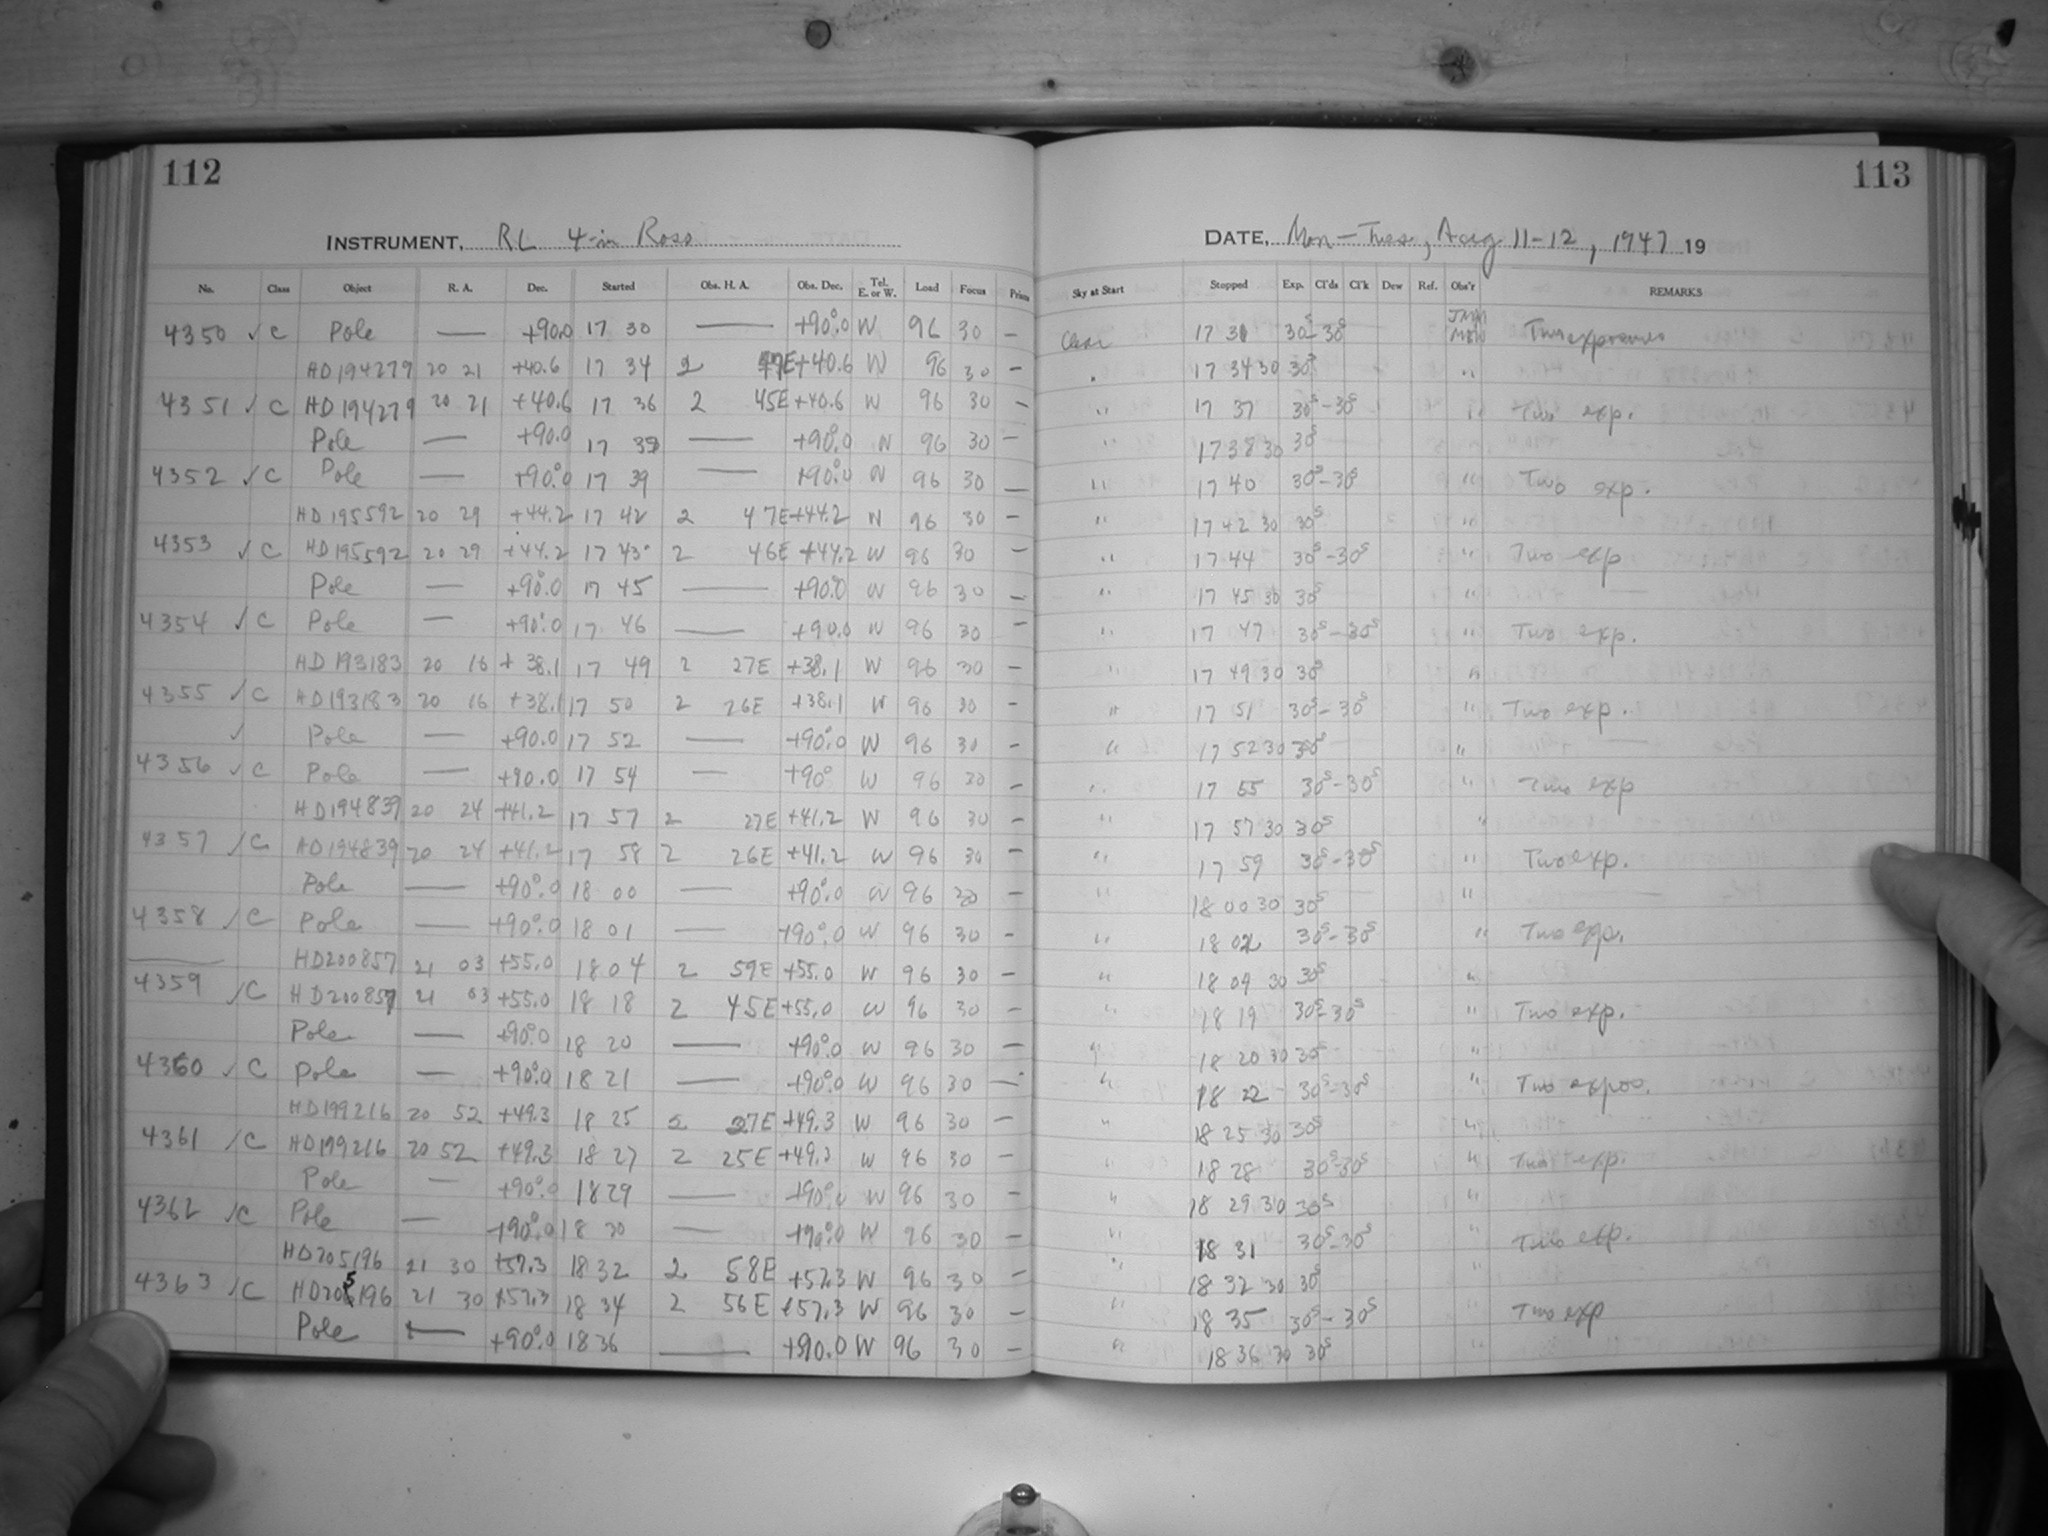 112
113
INSTRUMENT, RL 4-in Ross
DATE, Mon-Tues, Aug 11-12, 1947 19
No. Class Object R. A. Dec. Started Obs. H. A. Obs. Dec. Tel. E. or W. Load Focus Prism Sky at Start Stopped Exp. Cl'ds Cl'k Dew Ref. Obs'r REMARKS
4350 ✓ C Pole — +90.0 17 30 — +90°.0 W 96 30 — Clear 17 31 30s-30s Two exposures
HD194279 20 21 +40.6 17 34 2 47E +40.6 W 96 30 — " 17 34 30 30s "
4351 ✓ C HD194279 20 21 +40.6 17 36 2 45E +40.6 W 96 30 — " 17 37 30s-30s " Two exp.
Pole — +90.0 17 38 — +90°.0 W 96 30 — " 17 38 30 30s
4352 ✓ C Pole — +90°.0 17 39 — +90°.0 W 96 30 — " 17 40 30s-30s " Two exp.
HD195592 20 29 +44.2 17 42 2 47E +44.2 W 96 30 — " 17 42 30 30s "
4353 ✓ C HD195592 20 29 +44.2 17 43 2 46E +44.2 W 96 30 — " 17 44 30s-30s " Two exp
Pole — +90°.0 17 45 — +90°.0 W 96 30 — " 17 45 30 30s "
4354 ✓ C Pole — +90°.0 17 46 — +90.0 W 96 30 — " 17 47 30s-30s " Two exp.
HD193183 20 16 +38.1 17 49 2 27E +38.1 W 96 30 — " 17 49 30 30s "
4355 ✓ C HD193183 20 16 +38.1 17 50 2 26E +38.1 W 96 30 — " 17 51 30s-30s " Two exp.
✓ Pole — +90.0 17 52 — +90°.0 W 96 30 — " 17 52 30 30s "
4356 ✓ C Pole — +90.0 17 54 — +90° W 96 30 — " 17 55 30s-30s " Two exp
HD194839 20 24 +41.2 17 57 2 27E +41.2 W 96 30 — " 17 57 30 30s "
4357 ✓ C HD194839 20 24 +41.2 17 58 2 26E +41.2 W 96 30 — " 17 59 30s-30s " Two exp.
Pole — +90°.0 18 00 — +90°.0 W 96 30 — " 18 00 30 30s "
4358 ✓ C Pole — +90°.0 18 01 — +90°.0 W 96 30 — " 18 02 30s-30s " Two exps.
HD200857 21 03 +55.0 18 04 2 59E +55.0 W 96 30 — " 18 04 30 30s "
4359 ✓ C HD200857 21 03 +55.0 18 18 2 45E +55.0 W 96 30 — " 18 19 30s-30s " Two exp.
Pole — +90°.0 18 20 — +90°.0 W 96 30 — " 18 20 30 30s "
4360 ✓ C Pole — +90°.0 18 21 — +90°.0 W 96 30 — " 18 22 30s-30s " Two expos.
HD199216 20 52 +49.3 18 25 2 27E +49.3 W 96 30 — " 18 25 30 30s "
4361 ✓ C HD199216 20 52 +49.3 18 27 2 25E +49.3 W 96 30 — " 18 28 30s-30s " Two exp.
Pole — +90°.0 18 29 — +90°.0 W 96 30 — " 18 29 30 30s "
4362 ✓ C Pole — +90°.0 18 30 — +90°.0 W 96 30 — " 18 31 30s-30s " Two exp.
HD205196 21 30 +57.3 18 32 2 58E +57.3 W 96 30 — " 18 32 30 30s "
4363 ✓ C HD205196 21 30 +57.3 18 34 2 56E +57.3 W 96 30 — " 18 35 30s-30s " Two exp
Pole — +90°.0 18 36 — +90.0 W 96 30 — " 18 36 30 30s "